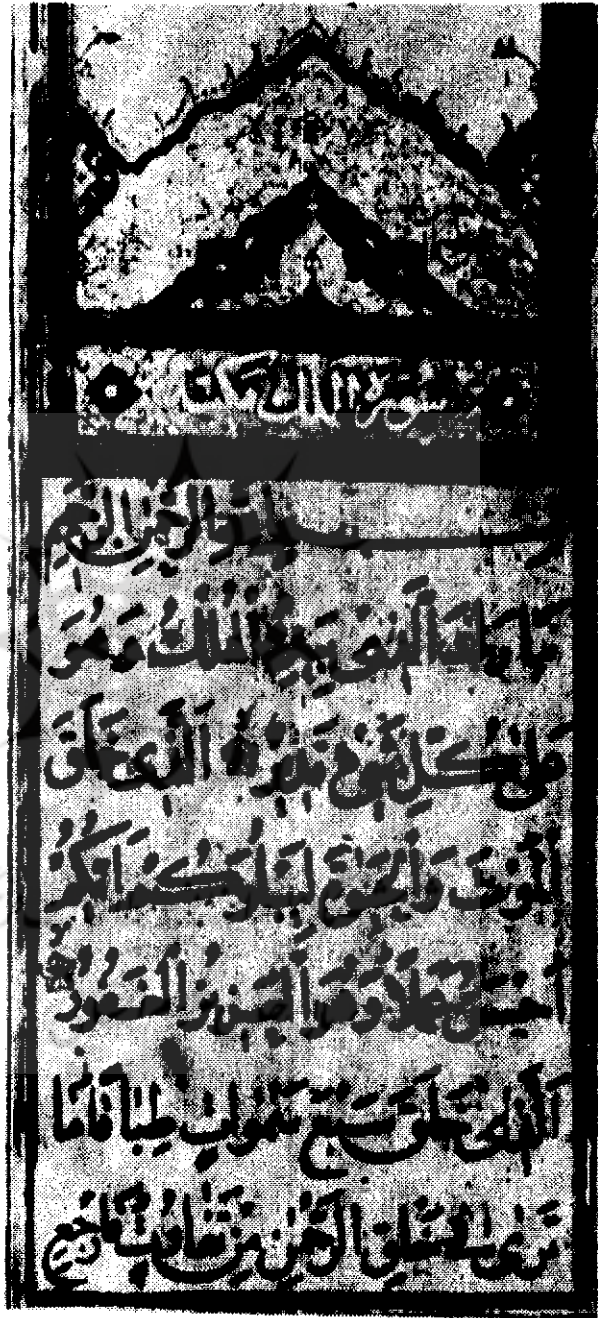 سورة
بِسْمِ اللَّهِ الرَّحْمَنِ الرَّحِيمِ
تَبَارَكَ الَّذِى بِيَدِهِ الْمُلْكُ وَهُوَ
عَلَى كُلِّ شَىْءٍ قَدِيرٌ الَّذِى خَلَقَ
الْمَوْتَ وَالْحَيَوةَ لِيَبْلُوَكُمْ اَيُّكُمْ
اَحْسَنُ عَمَلًا وَهُوَ الْعَزِيزُ الْغَفُورُ
الَّذِى خَلَقَ سَبْعَ سَمَوَاتٍ طِبَاقًا مَا
تَرَى فِى خَلْقِ الرَّحْمَنِ مِنْ تَفَاوُتٍ فَارْجِعِ